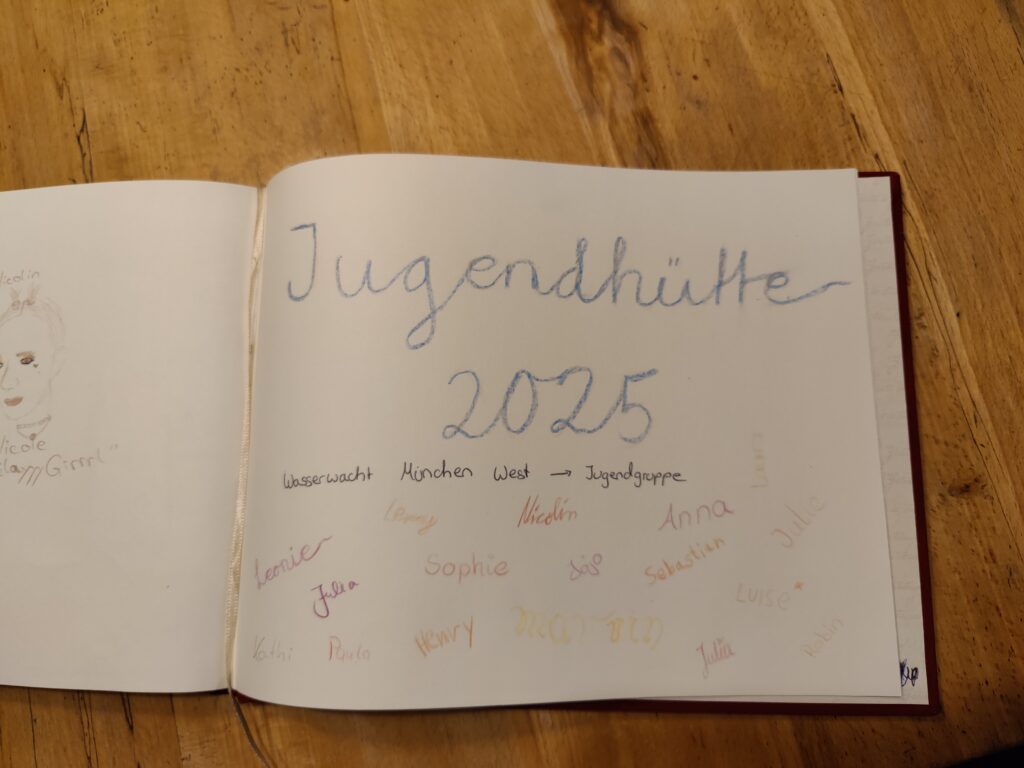 Nicole
Girrrl"
Jugendhütte
2025
Wasserwacht München West → Jugendgruppe
Lenny Nicolin Anna
Leonie Sophie Sebastian Julie
Julia Luise
Kathi Paula Henry Julia Robin